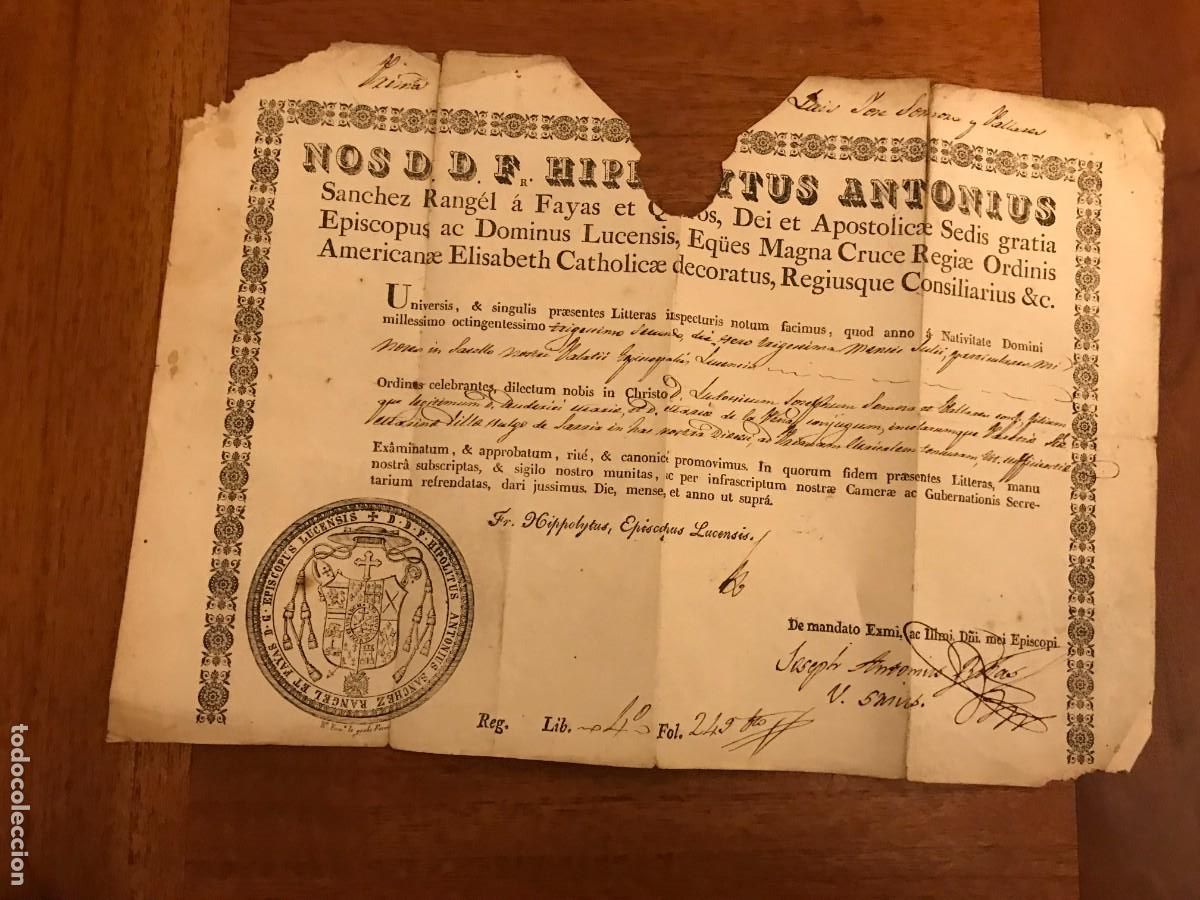 Luis Jose Somoza y Vallares
NOS D D Fr. HIP YTUS ANTONIUS
Sanchez Rangél á Fayas et Q os, Dei et Apostolicæ Sedis gratia
Episcopus ac Dominus Lucensis, Eqües Magna Cruce Regiæ Ordinis
Americanæ Elisabeth Catholicæ decoratus, Regiusque Consiliarius &c.
Universis, & singulis præsentes Litteras inspecturis notum facimus, quod anno á Nativitate Domini
millessimo octingentessimo trigesimo secundo, die vero trigesima mensis Julii, particulares mi
nores in Sacello nostri Palatii Episcopalis Lucensis
Ordines celebrantes, dilectum nobis in Christo D.
que legitimum D. conjugum, incolarumque
de Sarria in hac nostra Diœcesi, ad Primam Clericalem tonsuram,
Exâminatum, & approbatum, rité, & canonicé promovimus. In quorum fidem præsentes Litteras, manu
nostrâ subscriptas, & sigilo nostro munitas, ac per infrascriptum nostræ Cameræ ac Gubernationis Secre-
tarium refrendatas, dari jussimus. Die, mense, et anno ut suprá.
Fr. Hippolytus, Episcopus Lucensis.
D. D. F. HIPOLITUS ANTONIUS SANCHEZ RANGEL ET FAYAS D. G. EPISCOPUS LUCENSIS
De mandato Exmi, ac Illmi Dñi. mei Episcopi
Joseph Antonius
V. Sarius.
Reg. Lib. 4º Fol. 245
todocoleccion